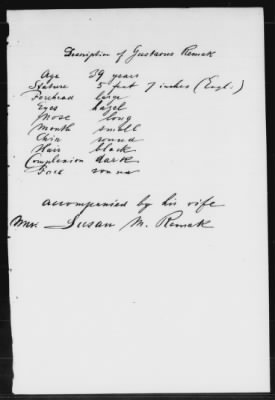 Description of Gustavus Remak
Age 39 years
Stature 5 feet 7 inches (Engl.)
Forehead large
Eyes hazel
Nose long
Mouth small
Chin round
Hair black
Complexion dark
Face round
accompanied by his wife
Mrs. Susan M. Remak